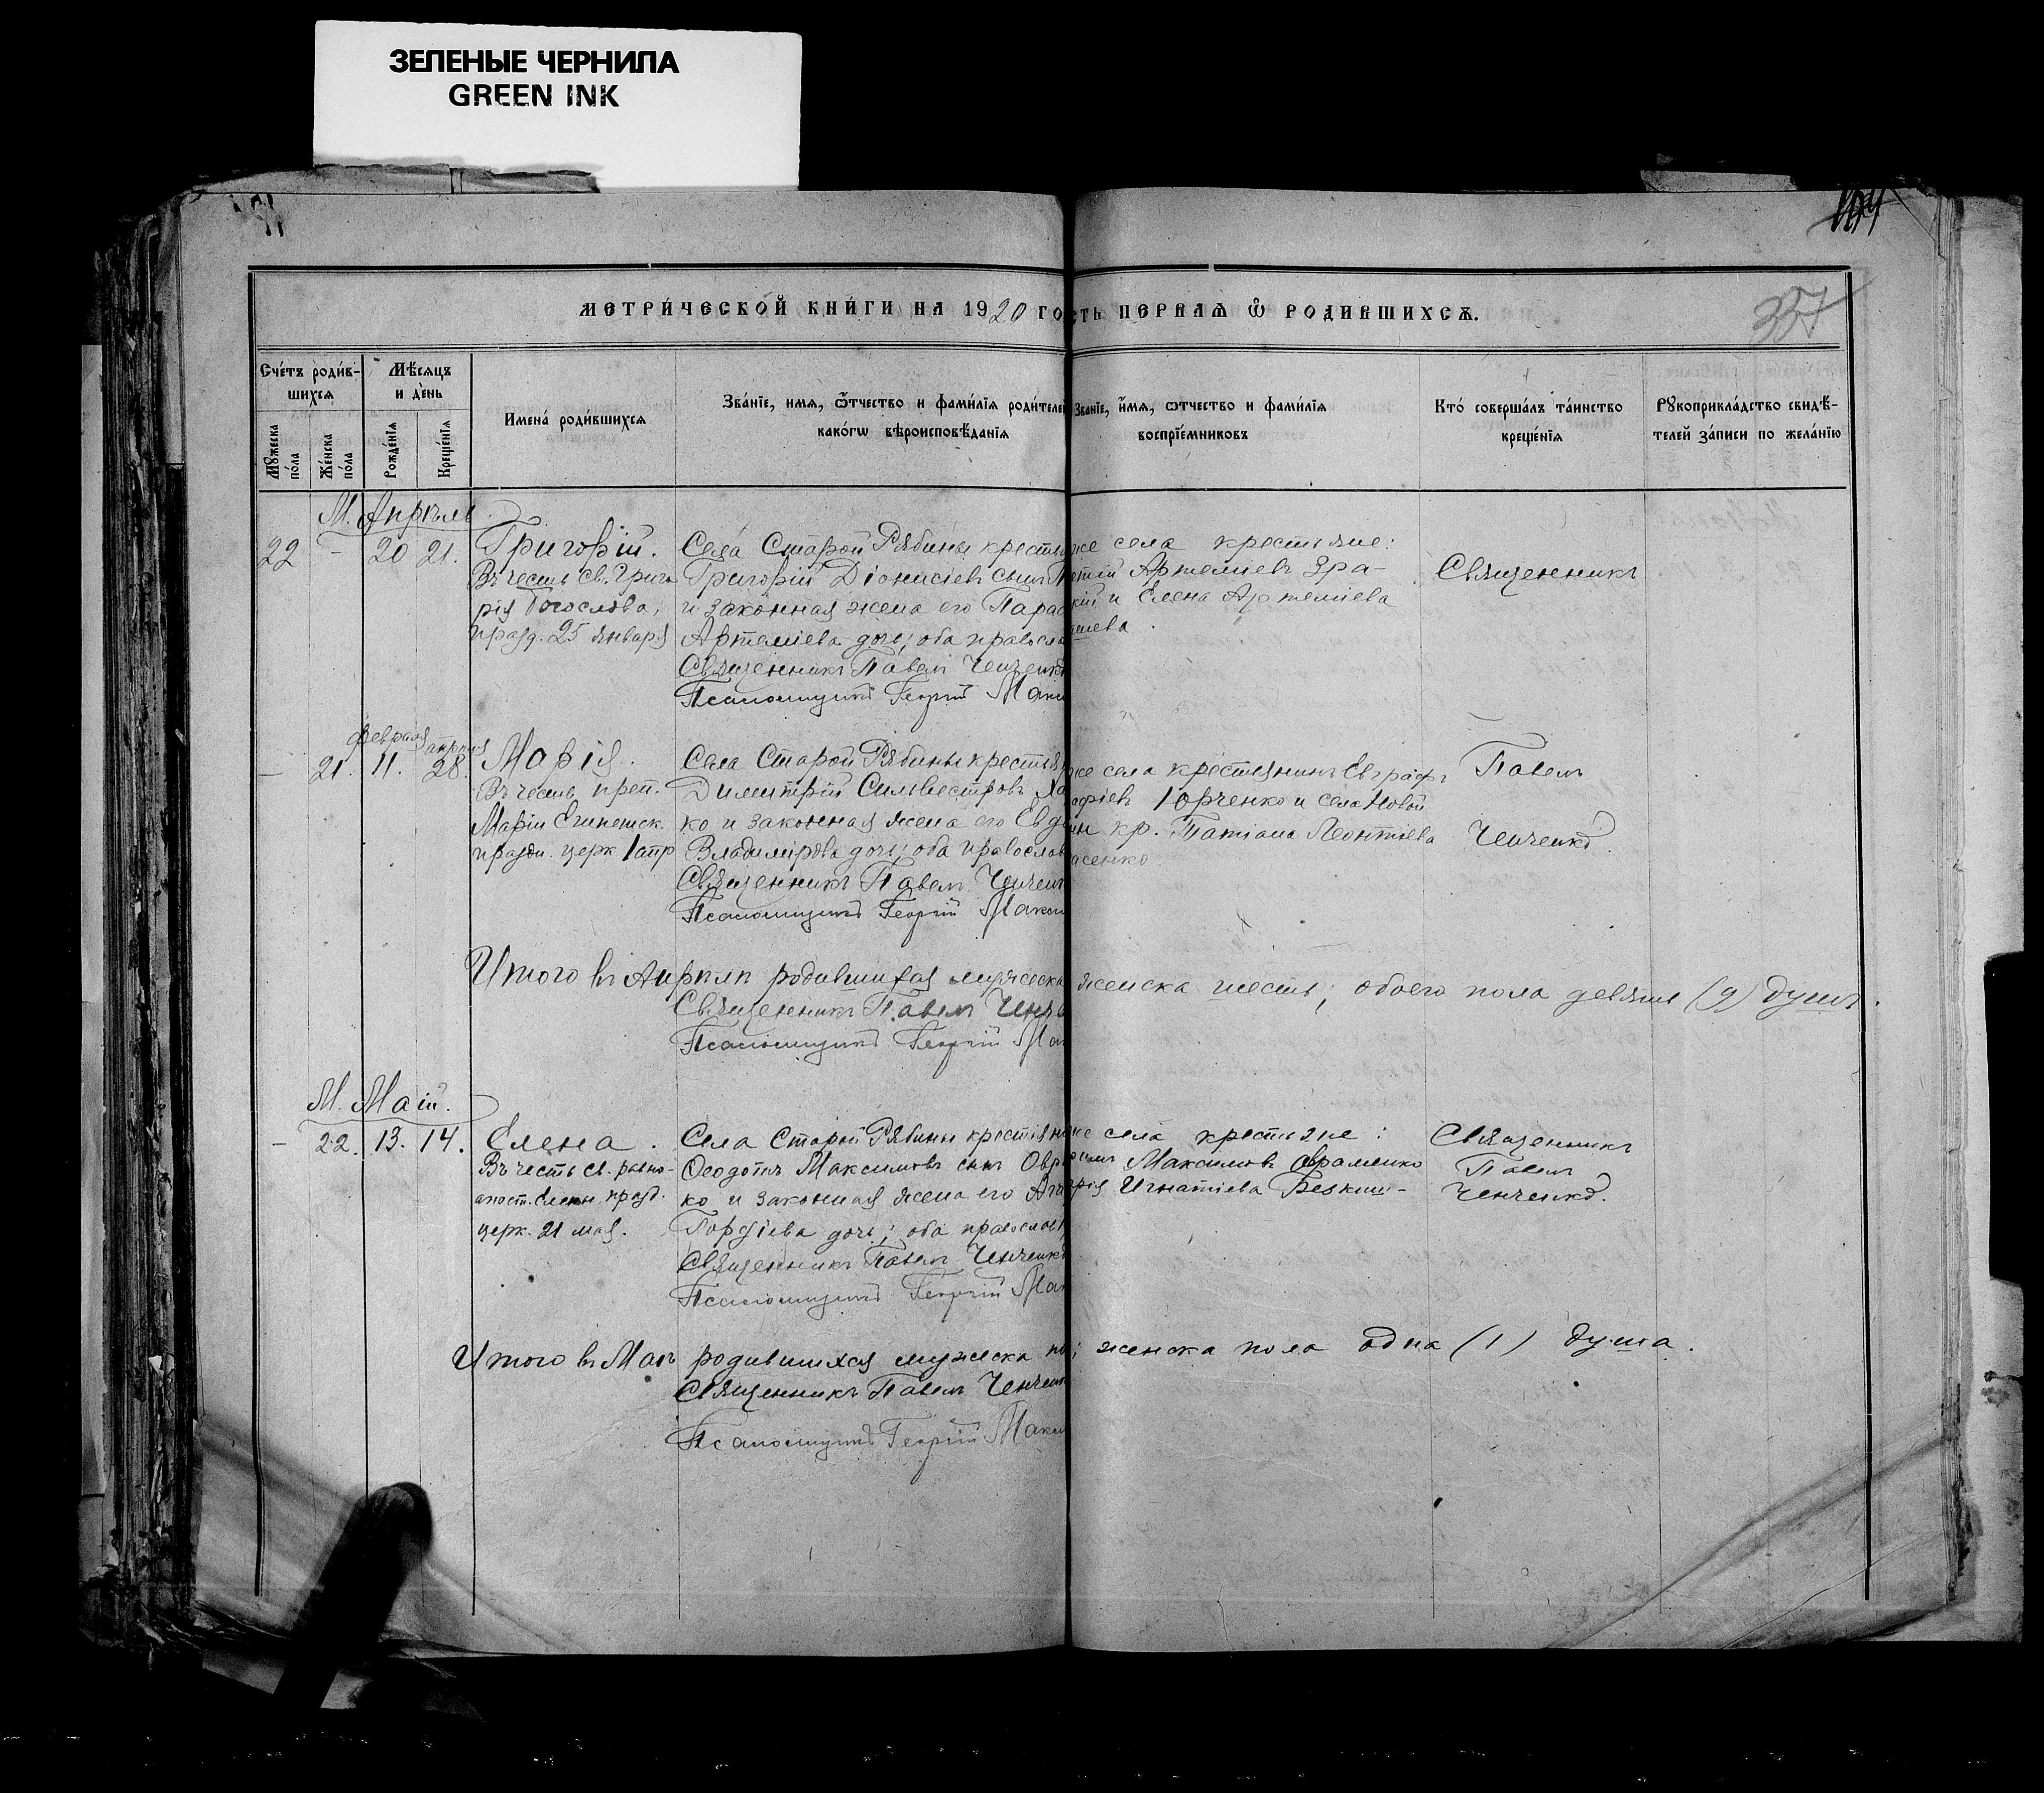 ЗЕЛЕНЫЕ ЧЕРНИЛА
GREEN INK
337
МЕТРИ́ЧЕСКОЙ КНИ́ГИ НА 1920 ГО
СТЬ ПЕРВАѦ Ѿ РОДИВШИХСѦ.
Сче́тъ роди́в-
шихсѧ
Мѣ́сѧцъ
и де́нь
Мꙋ́жеска
по́ла
Же́нска
по́ла
Рожде́нїѧ
Креще́нїѧ
Имена́ роди́вшихсѧ
Зва́нїе, имѧ, ѻ҆́тчество и фами́лїѧ роди́телей
како́гѡ вѣроисповѣ́данїѧ
Зва́нїе, и҆́мѧ, ѻтчество и фами́лїѧ
воспрїе́мниковъ
Кто́ соверша́лъ та́инство
креще́нїѧ
Рꙋкоприкла́дство свидѣ́-
телей за́писи по жела́нїю
М. Апрѣль
22 - 20 21. Григорій.
Въ честь св. Григо
рія Богослова,
празд. 25 января
Села Старой Рябины крестья
Григорій Діонисіевъ сынъ
и законная жена его Парас
Артеміева дочь; оба правосла
Священникъ Павелъ Ченченко
Псаломщикъ Георгій Макс
же села крестьяне:
Артеміевъ Зра-
кій и Елена Артеміева
Священникъ
февраля апрѣля
- 21. 11. 28. Марія.
Въ честь преп.
Маріи Египетск.
праздн. церк 1 апр
Села Старой Рябины крестьян
Димитрій Сильвестровъ
ко и законная жена его Евд
Владимірова дочь; оба православ
Священникъ Павелъ Ченченк
Псаломщикъ Георгій Макси
же села крестьянинъ Евграфъ
Юрченко и села Новой
кр. Татіана Леонтіева
асенко
Павелъ
Ченченко.
Итого въ Апрѣлѣ родившихся мужеска
женска шесть; обоего пола девять (9) душъ.
Священникъ Павелъ Ченч
Псаломщикъ Георгій Ма
М. Маій.
- 22. 13. 14. Елена.
Въ честь св. равно-
апост. Елены празд.
церк. 21 мая.
Села Старой Рябины крестьян
Ѳеодотъ Максимовъ сынъ Овра
ко и законная жена его Ага
Гордіева дочь; оба православ
Священникъ Павелъ Ченченко
Псаломщикъ Георгій Мак
же села крестьяне:
Максимовъ Авраменко
Игнатіева
Священникъ
Павелъ
Ченченко.
Итого въ Маѣ родившихся мужеска по
; женска пола одна (1) душа.
Священникъ Павелъ Ченченк
Псаломщикъ Георгій Макси